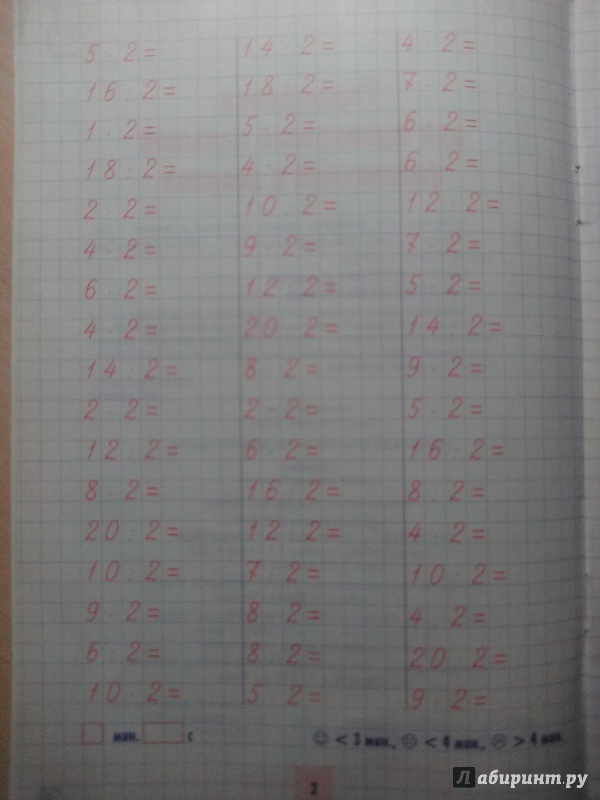 5 · 2 =
16 : 2 =
1 · 2 =
18 : 2 =
2 · 2 =
4 · 2 =
6 · 2 =
4 · 2 =
14 : 2 =
2 · 2 =
12 : 2 =
8 · 2 =
20 : 2 =
10 : 2 =
9 · 2 =
6 : 2 =
10 · 2 =
14 : 2 =
18 : 2 =
5 · 2 =
4 : 2 =
10 : 2 =
9 · 2 =
12 : 2 =
20 : 2 =
8 · 2 =
2 : 2 =
6 · 2 =
16 : 2 =
12 : 2 =
7 · 2 =
8 · 2 =
8 : 2 =
5 · 2 =
4 · 2 =
7 · 2 =
6 · 2 =
6 : 2 =
12 : 2 =
7 · 2 =
5 · 2 =
14 : 2 =
9 · 2 =
5 · 2 =
16 : 2 =
8 : 2 =
4 · 2 =
10 · 2 =
4 : 2 =
20 : 2 =
9 · 2 =
мин. с
< 3 мин., < 4 мин., > 4 мин.
2
Лабиринт.ру